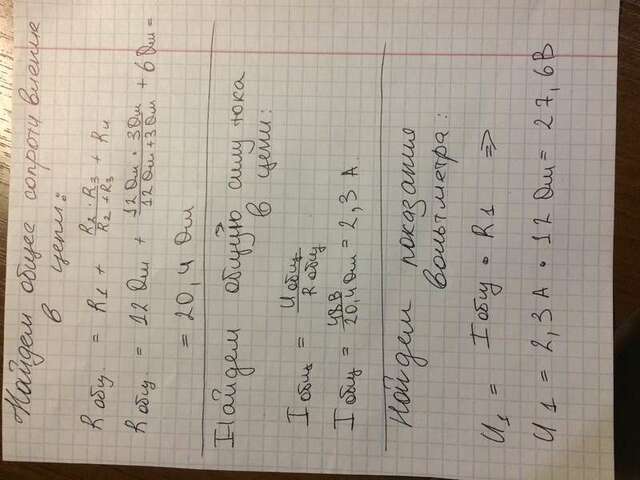 Найдем общее сопротивление
в цепи:
R общ. = R1 + R2 · R3 / R2 + R3 + R4
R общ. = 12 Ом + 12 Ом · 3 Ом / 12 Ом + 3 Ом + 6 Ом =
= 20,4 Ом
Найдем общую силу тока
в цепи:
I общ = U общ / R общ
I общ = 48 В / 20,4 Ом = 2,3 А
Найдем показания
вольтметра:
U1 = I общ · R1 =>
U1 = 2,3 А · 12 Ом = 27,6 В